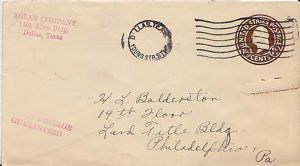 SOLAR COMPANY
Allen Bldg.
Dallas, Texas
DALLAS, TEX.
YOUNG ST. STA.
UNITED STATES POSTAGE
CENTS
POSTAGE
GUARANTEED
H L Balderston
19th Floor
Land Title Bldg.
Philadelphia,
Pa